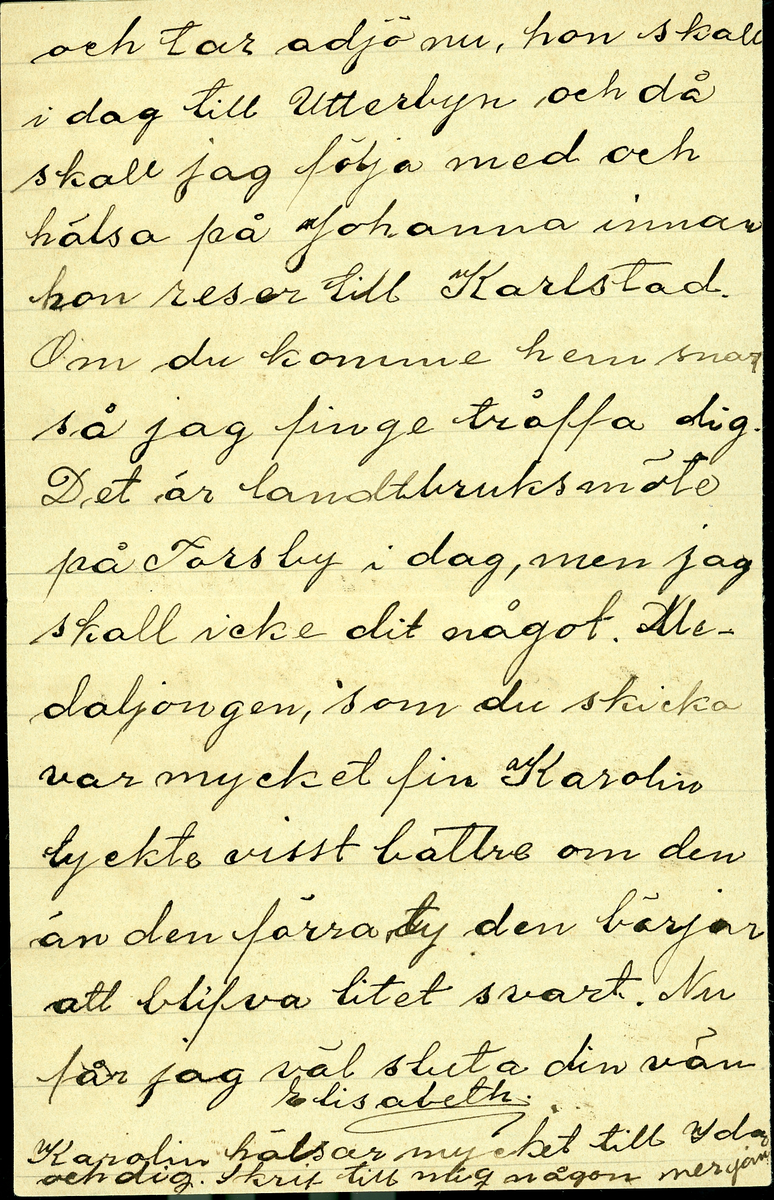 och tar adjö nu, hon skall
i dag till Utterbyn och då
skall jag följa med och
hälsa på Johanna innan
hon reser till Karlstad.
Om du komme hem snar
så jag finge träffa dig.
Det är landtbruksmöte
på Torsby i dag, men jag
skall icke dit något. Me-
daljongen, som du skicka
var mycket fin Karolin
tyckte visst bättre om den
än den förra, ty den börjar
att blifva litet svart. Nu
får jag väl sluta din vän
Elisabeth.
Karolin hälsar mycket till Ida
och dig. Skrif till mig någon